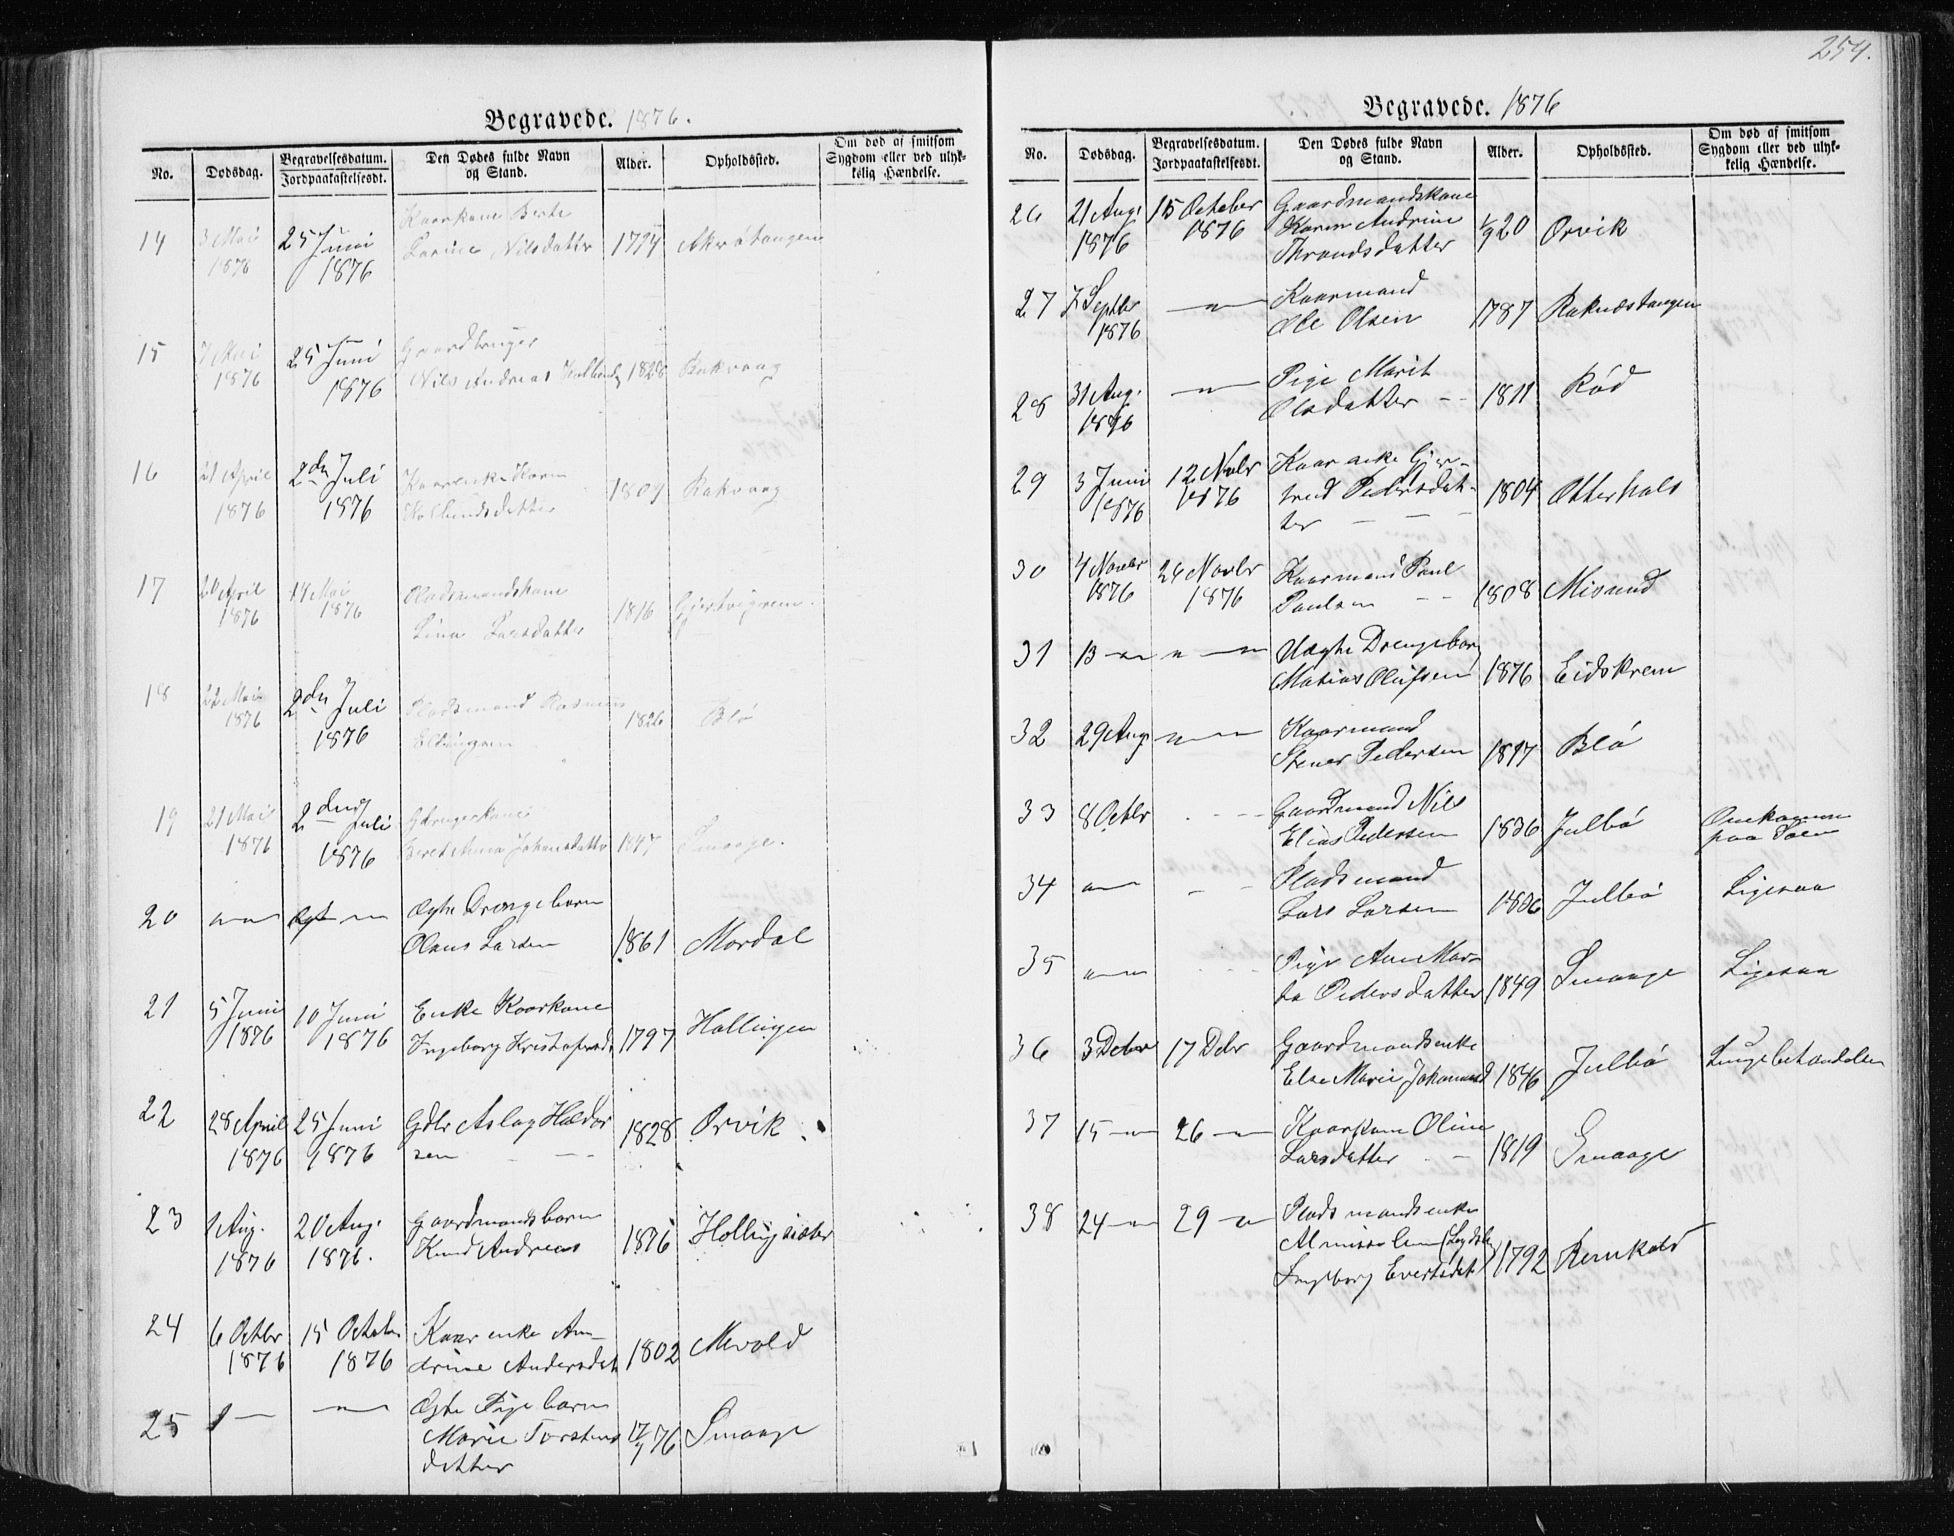 254.
Begravede. 1876.
No. Dødsdag. Begravelsesdatum. Jordpaakastelsesdt. Den Dødes fulde Navn og Stand. Alder. Opholdssted. Om død af smitsom Sygdom eller ved ulykkelig Hændelse.
14 3 Mai 1876 25 Juni 1876 Kaarkone Berte
Larine Nilsdatter 1774 Akrøtangen
15 7 Mai 1876 25 Juni 1876 Gaardbruger
Nils Andreas 1828 Rakvaag
16 21 April 1876 2den Juli 1876 Kaarenke Karen
1804 Rakvaag
17 20 April 1876 14 Mai 1876 Pladsmandskone
Lina Larsdatter 1816
18 22 Mai 1876 2den Juli 1876 Pladsmand Rasmus
1826 Blø
19 21 Mai 1876 2den Juli 1876 Gbrugerkone
Beret Anna Johansdatter 1847 Smaage.
20 Ægte Drengebarn
Olaus Larsen 1861 Mordal
21 5 Juni 1876 10 Juni 1876 Enke Kaarkone
Ingeborg Kristofersd. 1797 Hollingen
22 28 April 1876 25 Juni 1876 Gdbr Aslag Haldor
sen 1828 Orvik
23 1 Aug. 1876 20 Aug. 1876. Gaardmandsbarn
Knud Andreas 1876 Hollingsæter
24 6 Octbr 1876 15 Octobr 1876 Kaarenke An-
drine Andersdat 1802 Mevold
25 Ægte Pigebarn
Marie Torstens
datter 17/4 76 Smaage
Begravede. 1876
No. Dødsdag. Begravelsesdatum. Jordpaakastelsesdt. Den Dødes fulde Navn og Stand. Alder. Opholdssted. Om død af smitsom Sygdom eller ved ulykkelig Hændelse.
26 21 Aug. 1876 15 October 1876 Gaardmandskone
Karen Andrine
Throndsdatter 1/9 20 Orvik
27 7 Septbr 1876 Kaarmand
Ole Olsen 1787 Raknæstangen
28 31 Aug. 1876 Pige Marit
Olsdatter 1811 Rød
29 3 Juni 1876 12 Novbr 1876 Kaarenke Gjer-
trud Pedersdat-
ter 1804 Otterhals
30 4 Novbr 1876 26 Novbr 1876 Kaarmand Paul
Paulsen 1808 Misund
31 13 Uægte Drengebarn
Matias Olufsen 1876 Eidskrem
32 29 Aug Kaarmand
Stener Pedersen 1817 Blø
33 8 Octbr Gaardmand Nils
Elias Pedersen 1836 Julbø Omkommen
paa Søen
34 Pladsmand
Lars Larsen 1836 Julbø Ligesaa
35 Pige Ane Mar-
ta Pedersdatter 1849 Smaage Ligesaa
36 3 Debr 17 Debr Gaardmandsenke
Else Marie Johannesd 1846 Julbø
37 15 26 Kaarkone Oline
Larsdatter 1819 Smaage
38 24 29 Pladsmandsenke
Almisselem (Lægdslem)
Ingeborg Evertsdat 1792